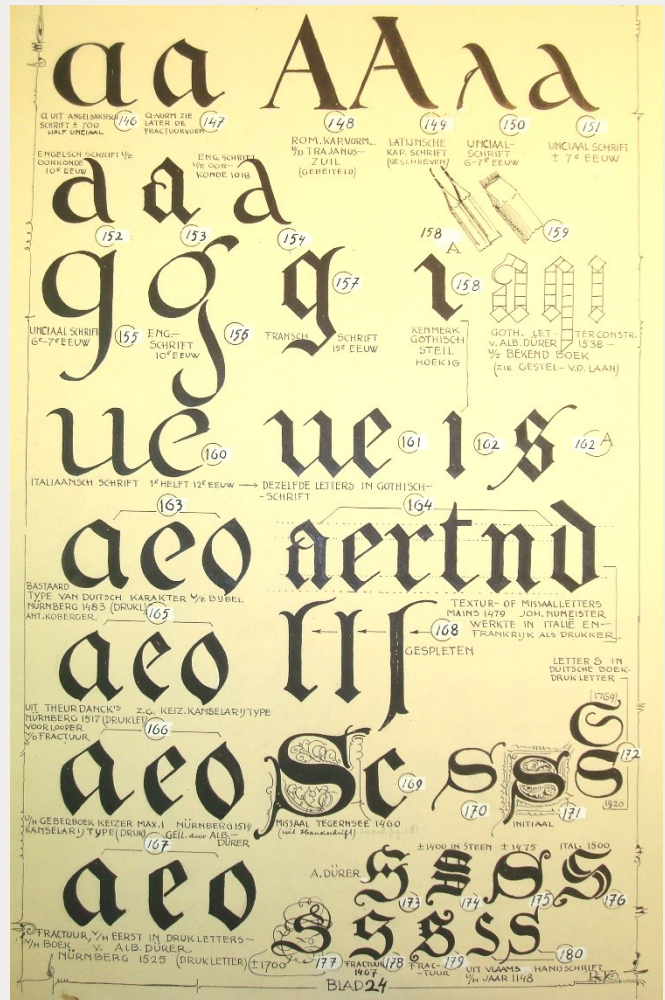 a a A A λ a
146 147 148 149 150 151
a UIT ANGELSAKSISCH
SCHRIFT ± 700
HALF UNCIAAL
a-VORM ZIE
LATER DE
FRACTUURVORM
ROM. KAP. VORM
V/D TRAJANUS-
ZUIL
(GEBEITELD)
LATIJNSCHE
KAP. SCHRIFT
(GESCHREVEN)
UNCIAAL-
SCHRIFT
6-7e EEUW
UNCIAAL SCHRIFT
± 7e EEUW
ENGELSCH SCHRIFT V/E
OORKONDE
10e EEUW
ENG. SCHRIFT
V/E OOR-
KONDE 1018
a a a
152 153 154
158 A
159
g g g ı
155 156 157 158
a g i
UNCIAAL SCHRIFT
6e-7e EEUW
ENG.-
SCHRIFT
10e EEUW
FRANSCH SCHRIFT
15e EEUW
KENMERK
GOTHISCH
STEIL
HOEKIG
GOTH. LETTERCONSTR.
v. ALB. DÜRER 1538-
U/Z BEKEND BOEK
(ZIE GESTEL-V.D. LAAN)
ue ue ı s
160 161 162 162 A
ITALIAANSCH SCHRIFT 1e HELFT 12e EEUW → DEZELFDE LETTERS IN GOTHISCH-
-SCHRIFT
163 164
aeo aertnd
BASTAARD
TYPE VAN DUITSCH KARAKTER U/E BIJBEL
NÜRNBERG 1483 (DRUKL)
ANT. KOBERGER
TEXTUR- OF MISSAALLETTERS
MAINS 1479 JOH. NUMEISTER
WERKTE IN ITALIË EN-
FRANKRIJK ALS DRUKKER
165
aeo l l ſ
168
GESPLETEN
LETTER S IN
DUITSCHE BOEK-
DRUKLETTER
UIT THEURDANCK'S Z.G. KEIZ. KANSELARIJTYPE
NÜRNBERG 1517 (DRUKLET)
VOORLOOPER
V/D FRACTUUR
166
(1769)
S
aeo S c S S S
169 170 171 172
1920
U/H GEBEDBOEK KEIZER MAX.I NÜRNBERG 1514
KANSELARIJ TYPE (DRUK) GEIL. door ALB.-
DÜRER
MISSAAL TEGERNSEE 1400
(uit Handschrift)
INITIAAL
167
aeo
A. DÜRER
± 1400 IN STEEN ± 1475 ITAL. 1500
S S S S
173 174 175 176
FRACTUUR, V/H EERST IN DRUKLETTERS-
U/H BOEK v. ALB. DÜRER
NÜRNBERG 1525 (DRUKLETTER)
S S S S S
± 1700 177 FRACTUUR 178 FRAC- 179 180
1467 -TUUR
UIT VLAAMS HANDSCHRIFT
U/H JAAR 1148
BLAD 24